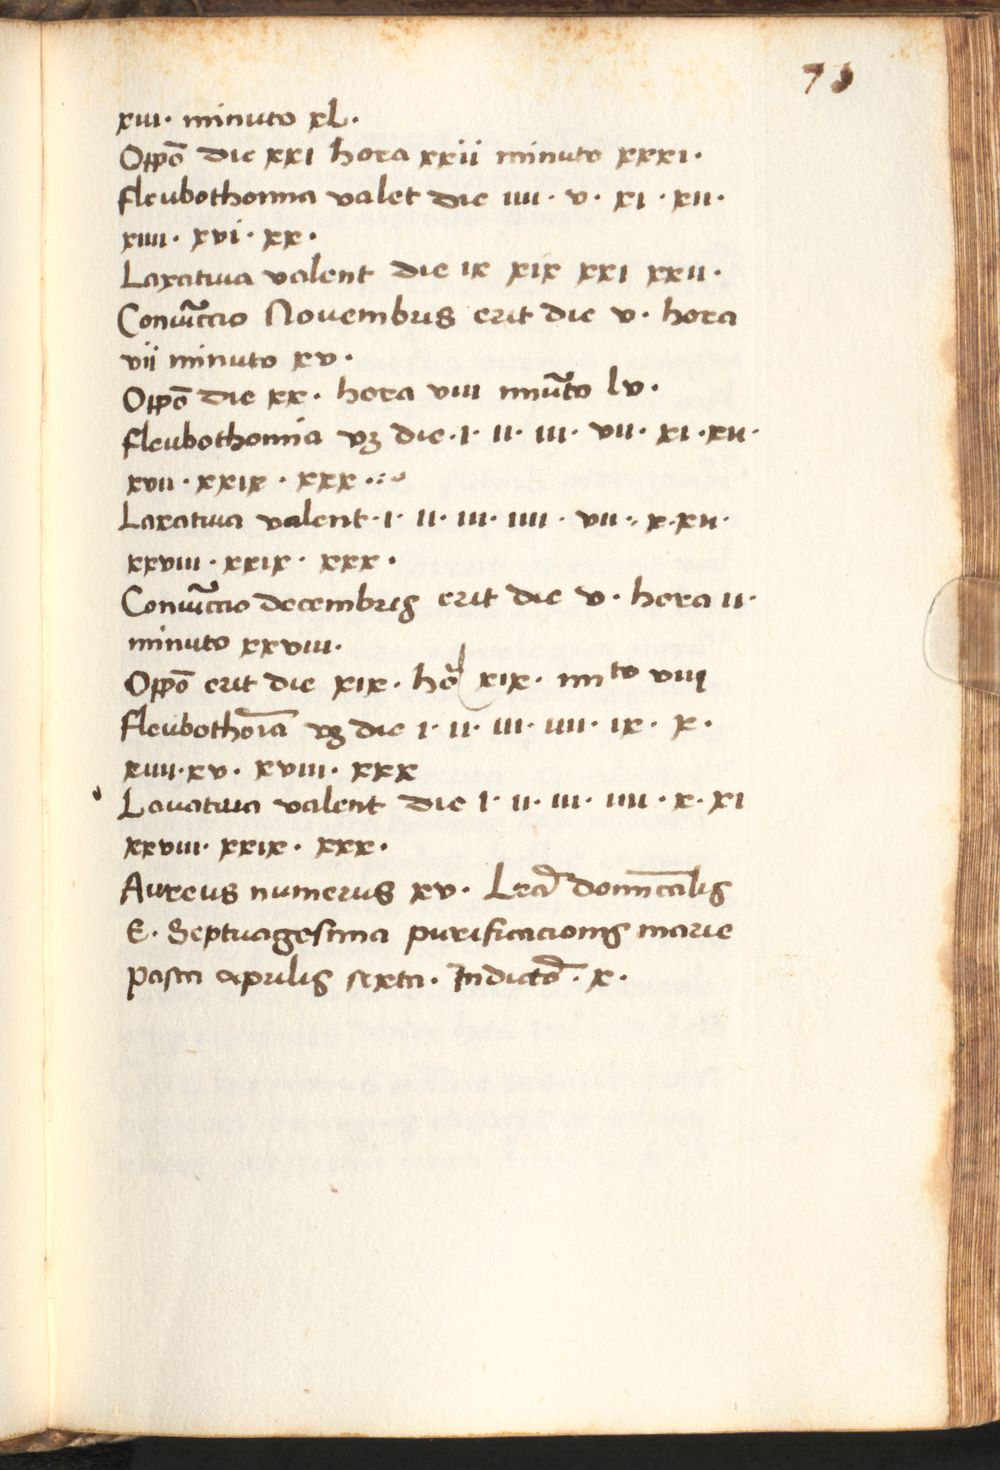 73
xiii· minuto xl·
Oppõ die xxi hora xxii minuto xxxi·
fleubothomia valet die iiii· v· xi· xii·
xiiii· xvi· xx·
Laxatiua valent die ix xix xxi xxii·
Coniũctio Nouembris erit die v· hora
vii minuto xv·
Oppõ die xx· hora viii minũto lv·
fleubothomia vꝫ die·i· ii· iii· vii· xi·xii·
xvii· xxix· xxx·
Laxatiua valent·i· ii· iii· iiii· vii· x·xii·
xxviii· xxix· xxx·
Coniũctio decembris erit die v· hora ii·
minuto xxviii·
Oppõ erit die xix· hoª xix· mito viii
fleubothoĩa vꝫ die i· ii· iii· iiii· ix· x·
xiiii·xv· xviii· xxx
Lauatiua valent die i· ii· iii· iiii· x· xi
xxviii· xxix· xxx·
Aureus numerus xv· Lrã domĩcalis
E· Septuagesima purificacionis marie
pasca aprilis sexta· Indictõ· x·